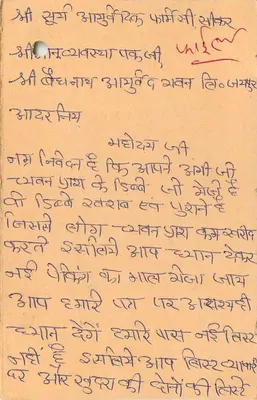 श्री सूर्य आयुर्वेदिक फार्मेसी, सीकर
श्री व्यवस्थापक जी,
फाईल
श्री बैद्यनाथ आयुर्वेद भवन लि० जयपुर
आदरनिय
महोदय जी
नम्र निवेदन है कि आपने अभी जी
च्यवन प्राश के डिब्बे जो भेजे है
वो डिब्बे खराब एवं पुराने है
जिससे लोग च्यवन प्राश कम खरीद
करते इसलिये आप ध्यान देकर
नई पेकिंग का माल भेजा जाय
आप हमारे पत्र पर अवश्य ही
ध्यान देगें हमारे पास नई लिस्ट
नहीं है इसलिये आप लिस्ट व्यापारी
दर और खुदरा की दोनों की लिस्टे